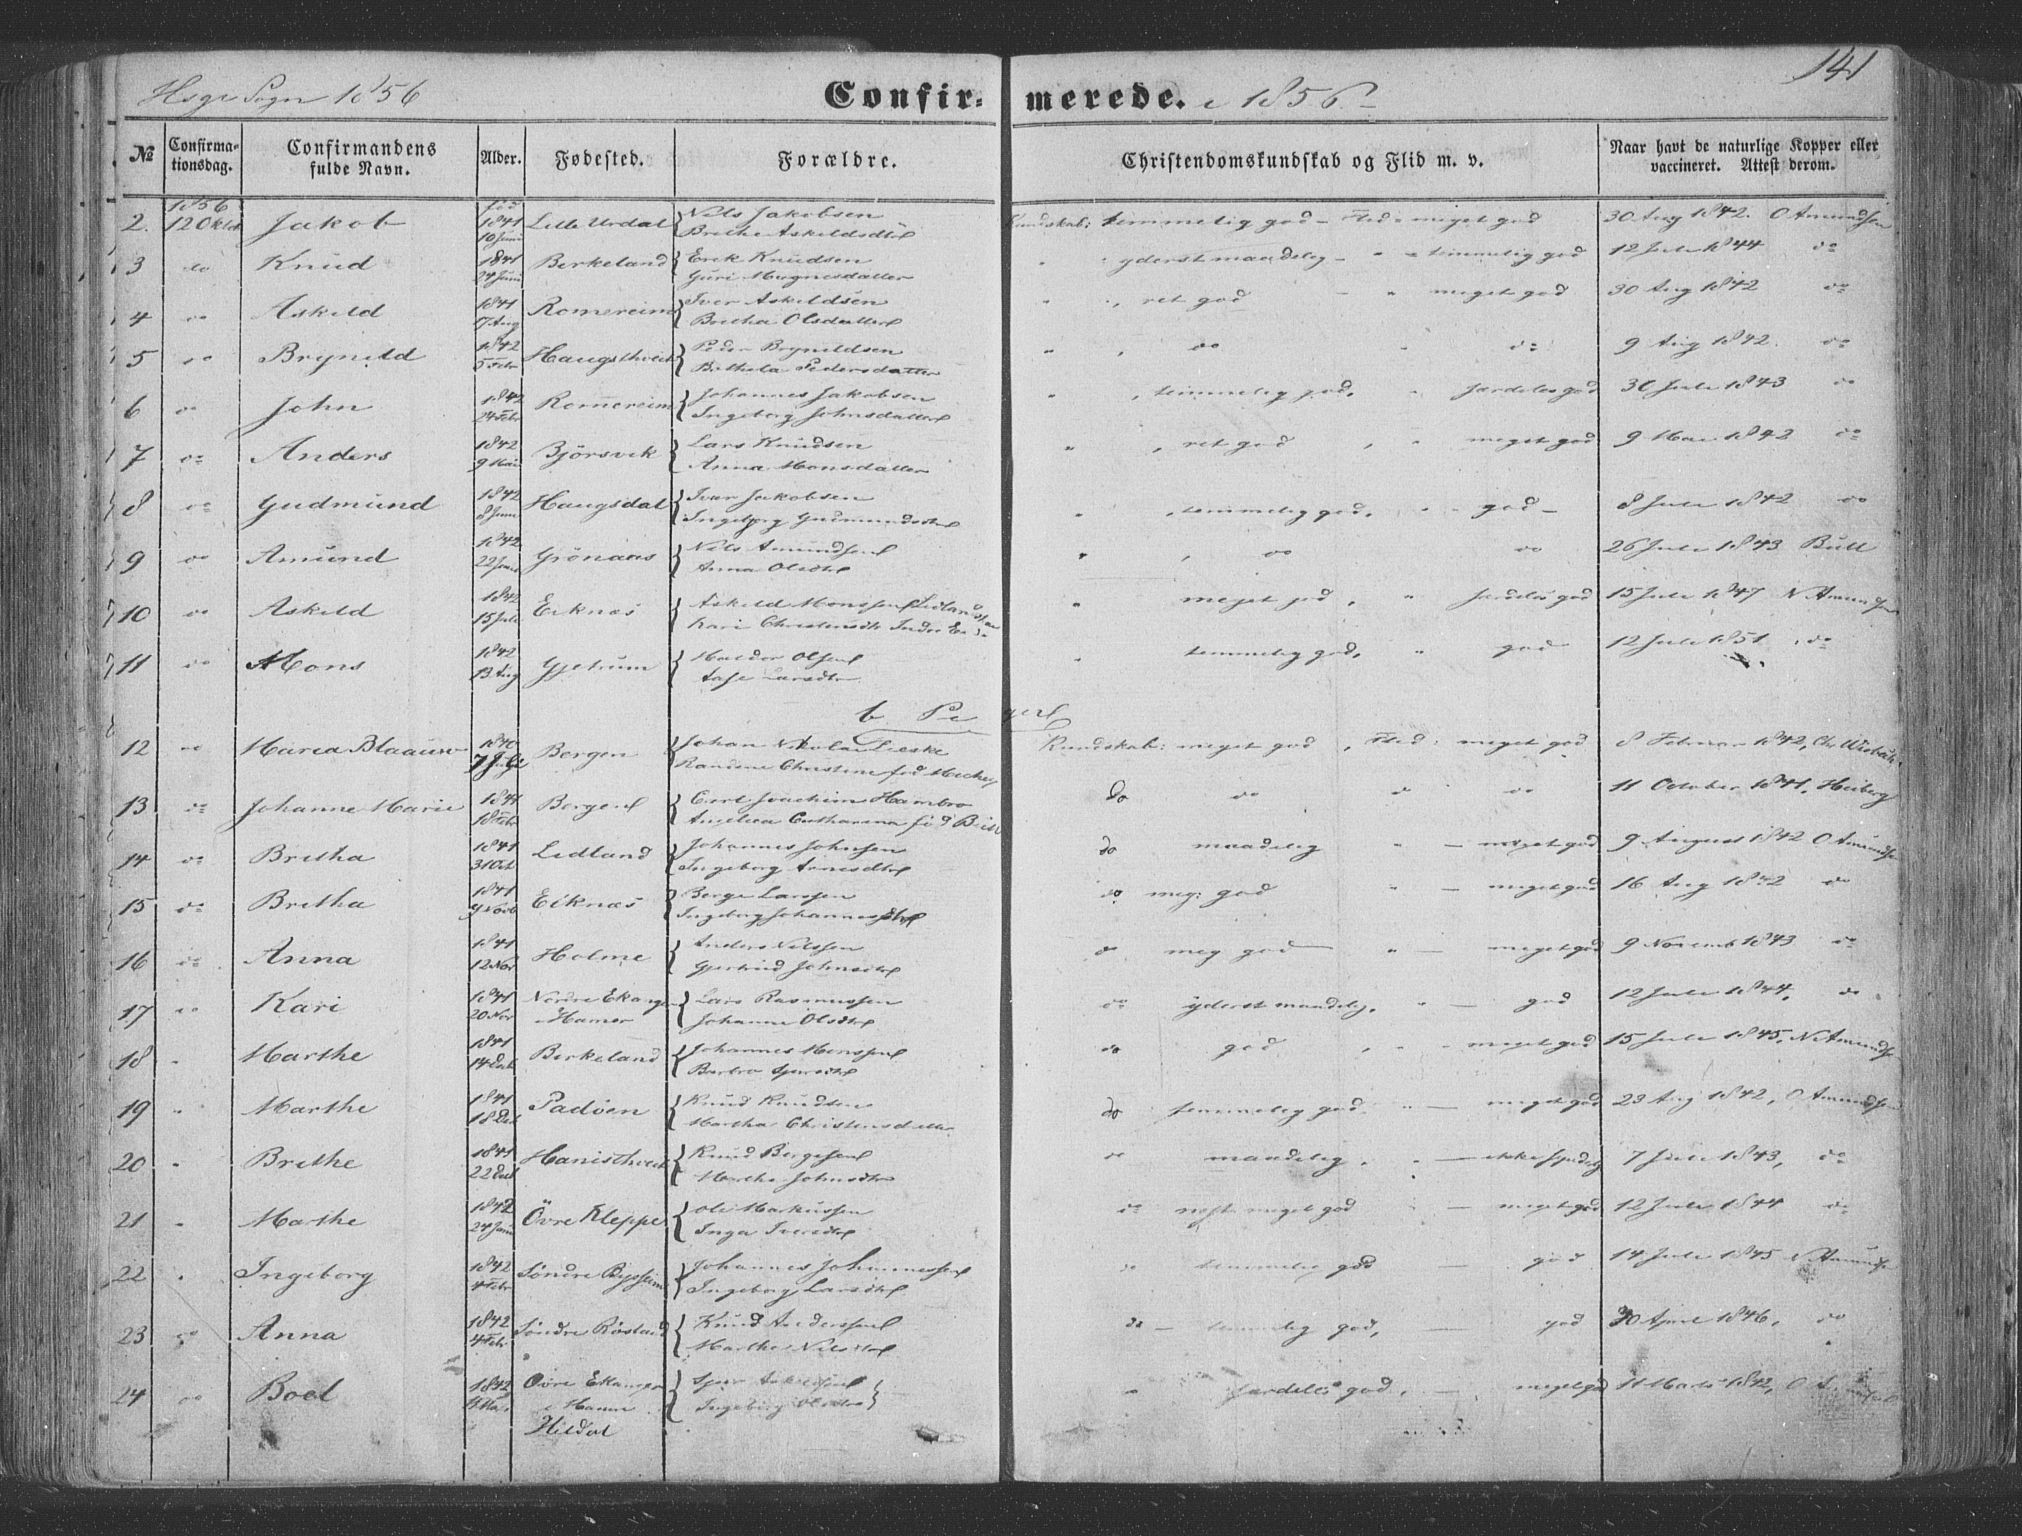 Sogn 1856 Confirmerede. 1856 141
No Confirmationsdag. Confirmandens fulde Navn. Alder. Fødested. Forældre. Christendomskundskab og Flid m. v. Naar havt de naturlige Kopper eller vaccineret. Attest derom.
2. 1856 12 Oktb Jakob 1841 10 Juni Lille Urdal Nils Jakobsen Brethe Askeldsdtr Kundskab: temmelig god - Flid: meget god 30 Aug 1842. O Amundsen
3 do Knud 1841 24 Juni Birkeland Erik Knudsen Guri Magnesdatter yderst maadelig - temmelig god 12 Juli 1844 do
4 do Askeld 1841 17 Aug Romereim Iver Askeldsen Bretha Olsdatter ret god meget god 30 Aug 1842 do
5 do Brynild 1842 5 Febr Haugsthveit Peder Brynildsen Bethela Pedersdatter do do 9 Aug 1842. do
6 do John 1842 24 Febr Romereim Johannes Jakobsen Ingeborg Johnsdatter temmelig god, særdeles god 30 Juli 1843 do
7 do Anders 1842 9 Mai Björsvik Lars Knudsen Anna Monsdatter ret god meget god 9 1842 do
8 do Gudmund 1842 8 Juni Haugsdal Ivar Jakobsen Ingeborg Gudmundsdtr temmelig god, god - 8 Juli 1842 do
9 do Amund 1842 22 Grönaas Nils Amundsen Anna Olsdtr do do 26 Juli 1843 Bull
10 do Askeld 1842 15 Juli Eiknæs Askeld Monssen Kari Christensdtr Indre meget god, særdeles god 15 Juli 1847 N Amundsen
11 do Mons 1842 13 Aug Gjetrum Haldor Olsen Larsdtr temmelig god, god 12 Juli 1851. do
b. Piger
12 do Maria Blaauw 1840 7 Juli Bergen Johan Nikolai Lieske Randine Christine fød Kundskab: meget god, Flid: meget god 8 Februar 1842, Chr Wisbech
13 do Johanne Marie 1841 18 Febr Bergen Joachim Hambro Angelica Catharina fød Bull do do do do 11 October 1841, Heiberg
14 do Bretha 1841 31 Oct Lidland Johannes Johnsen Ingeborg Arnesdtr do maadelig - meget god 9 August 1842 O Amundsen
15 do Bretha 1841 9 Novb Eiknæs Berge Larssen Ingeborg Johannesdtr do meg: god - meget god 16 Aug 1842 do
16 do Anna 1841 12 Nov Holme Anders Nilssen Gjertrud Johnsdtr do meg god - meget god 9 Novemb 1843 do
17 do Kari 1841 20 Nov Nordre Ekanger i Hamer Lars Rasmussen Johanna Olsdtr do yderst maadelig, - god 12 Juli 1844, do
18 Marthe 1841 14 Dec Birkeland Johannes Monssen Barbro Sjursdtr do god, meget god 15 Juli 1845, N Amundsen
19 Marthe 1841 18 Dec Padöen Knud Knudsen Martha Christensdatter do temmelig god - meget god 23 Aug 1842, O Amundsen
20 Brethe 1841 22 Dec Hanisthveit Knud Bergesen Marthe Johnsdtr do maadelig, - ikke synderlig 7 Juli 1843, do
21 Marthe 1842 24 Janu Övre Kleppe Ole Markussen Inga Iversdtr do næst meget god - meget god 12 Juli 1844 do
22 Ingeborg 1842 4 Febr Söndre Johannes Johannessen Ingeborg Larsdtr do temmelig god - god 14 Juli 1845 N Amundsen
23 do Anna 1842 4 Febr Söndre Knud Anderssen Marthe Nilsdtr do - temmelig god, - god 30 April 1846, do
24 do Boel 1842 Övre Ekanger i Hamer Hildal Sjur Askeldsen Ingeborg Olsdtr særdeles god, - meget god 11 Marts 1842, O A